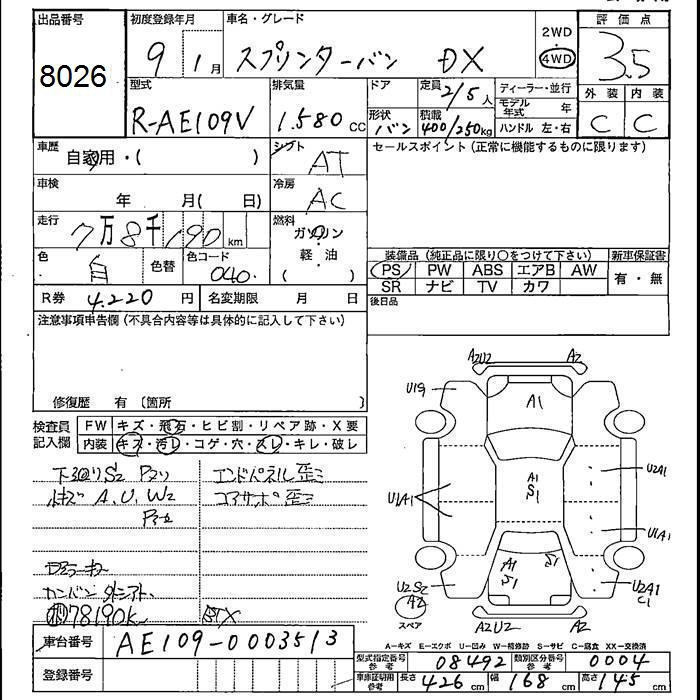 出品番号 初度登録年月 車名・グレード 2WD 評価点
8026 9年 1月 スプリンターバン DX 4WD 3.5
型式 排気量 ドア 定員 2/5人 ディーラー・並行 外装 内装
R-AE109V 1.580cc 形状 バン 積載 400/250kg モデル年式 年 C C
ハンドル 左・右
車歴 自家用・( ) シフト AT セールスポイント(正常に機能するものに限ります)
車検 年 月( 日) 冷房 AC
走行 7万8千190km 燃料 ガソリン
軽・油
( )
色 白 色替 色コード 040 装備品(純正品に限り〇をつけて下さい) 新車保証書
PS PW ABS エアB AW 有・無
R券 4.220円 名変期限 月 日 SR ナビ TV カワ
後日品
注意事項申告欄(不具合内容等は具体的に記入して下さい)
修復歴 有 (箇所 )
検査員記入欄 FW キズ・飛石・ヒビ割・リペア跡・X要
内装 キズ・汚レ・コゲ・穴・スレ・キレ・破レ
下廻りS2 エンドパネル歪ミ
A、U、W2 コアサポ歪ミ
78190K
A2U2 A2
U1S A1
A1
S1 U2A1
U1A1 U1A1
A1 S1
S1
U2S2 U2A1
A2 C1
スペア A2U2 A2
A-キズ E-エクボ U-凹み W-補修跡 S-サビ C-腐食 XX-交換済
車台番号 AE109-0003513
型式指定番号参考 08492 類別区分番号参考 0004
登録番号 車庫証明用参考 長さ 426cm 幅 168cm 高さ 145cm